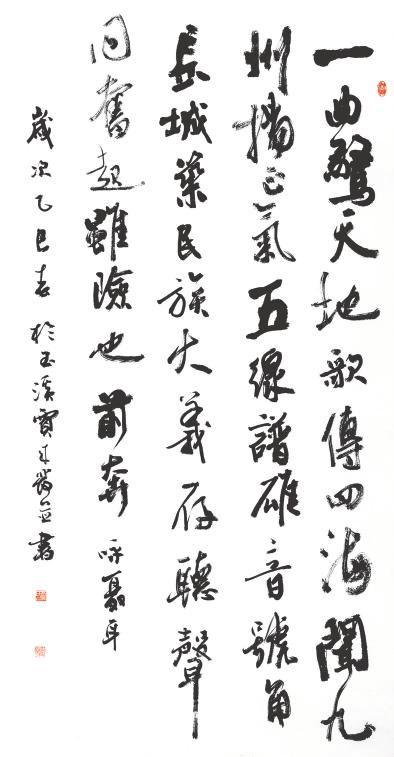 一曲驚天地歌傳四海聞九
州揚正氣五線譜雄音號角
長城築民族大義存聽聲
同奮起雖險也前奔 詠聶耳
歲次乙巳春於玉溪 並書